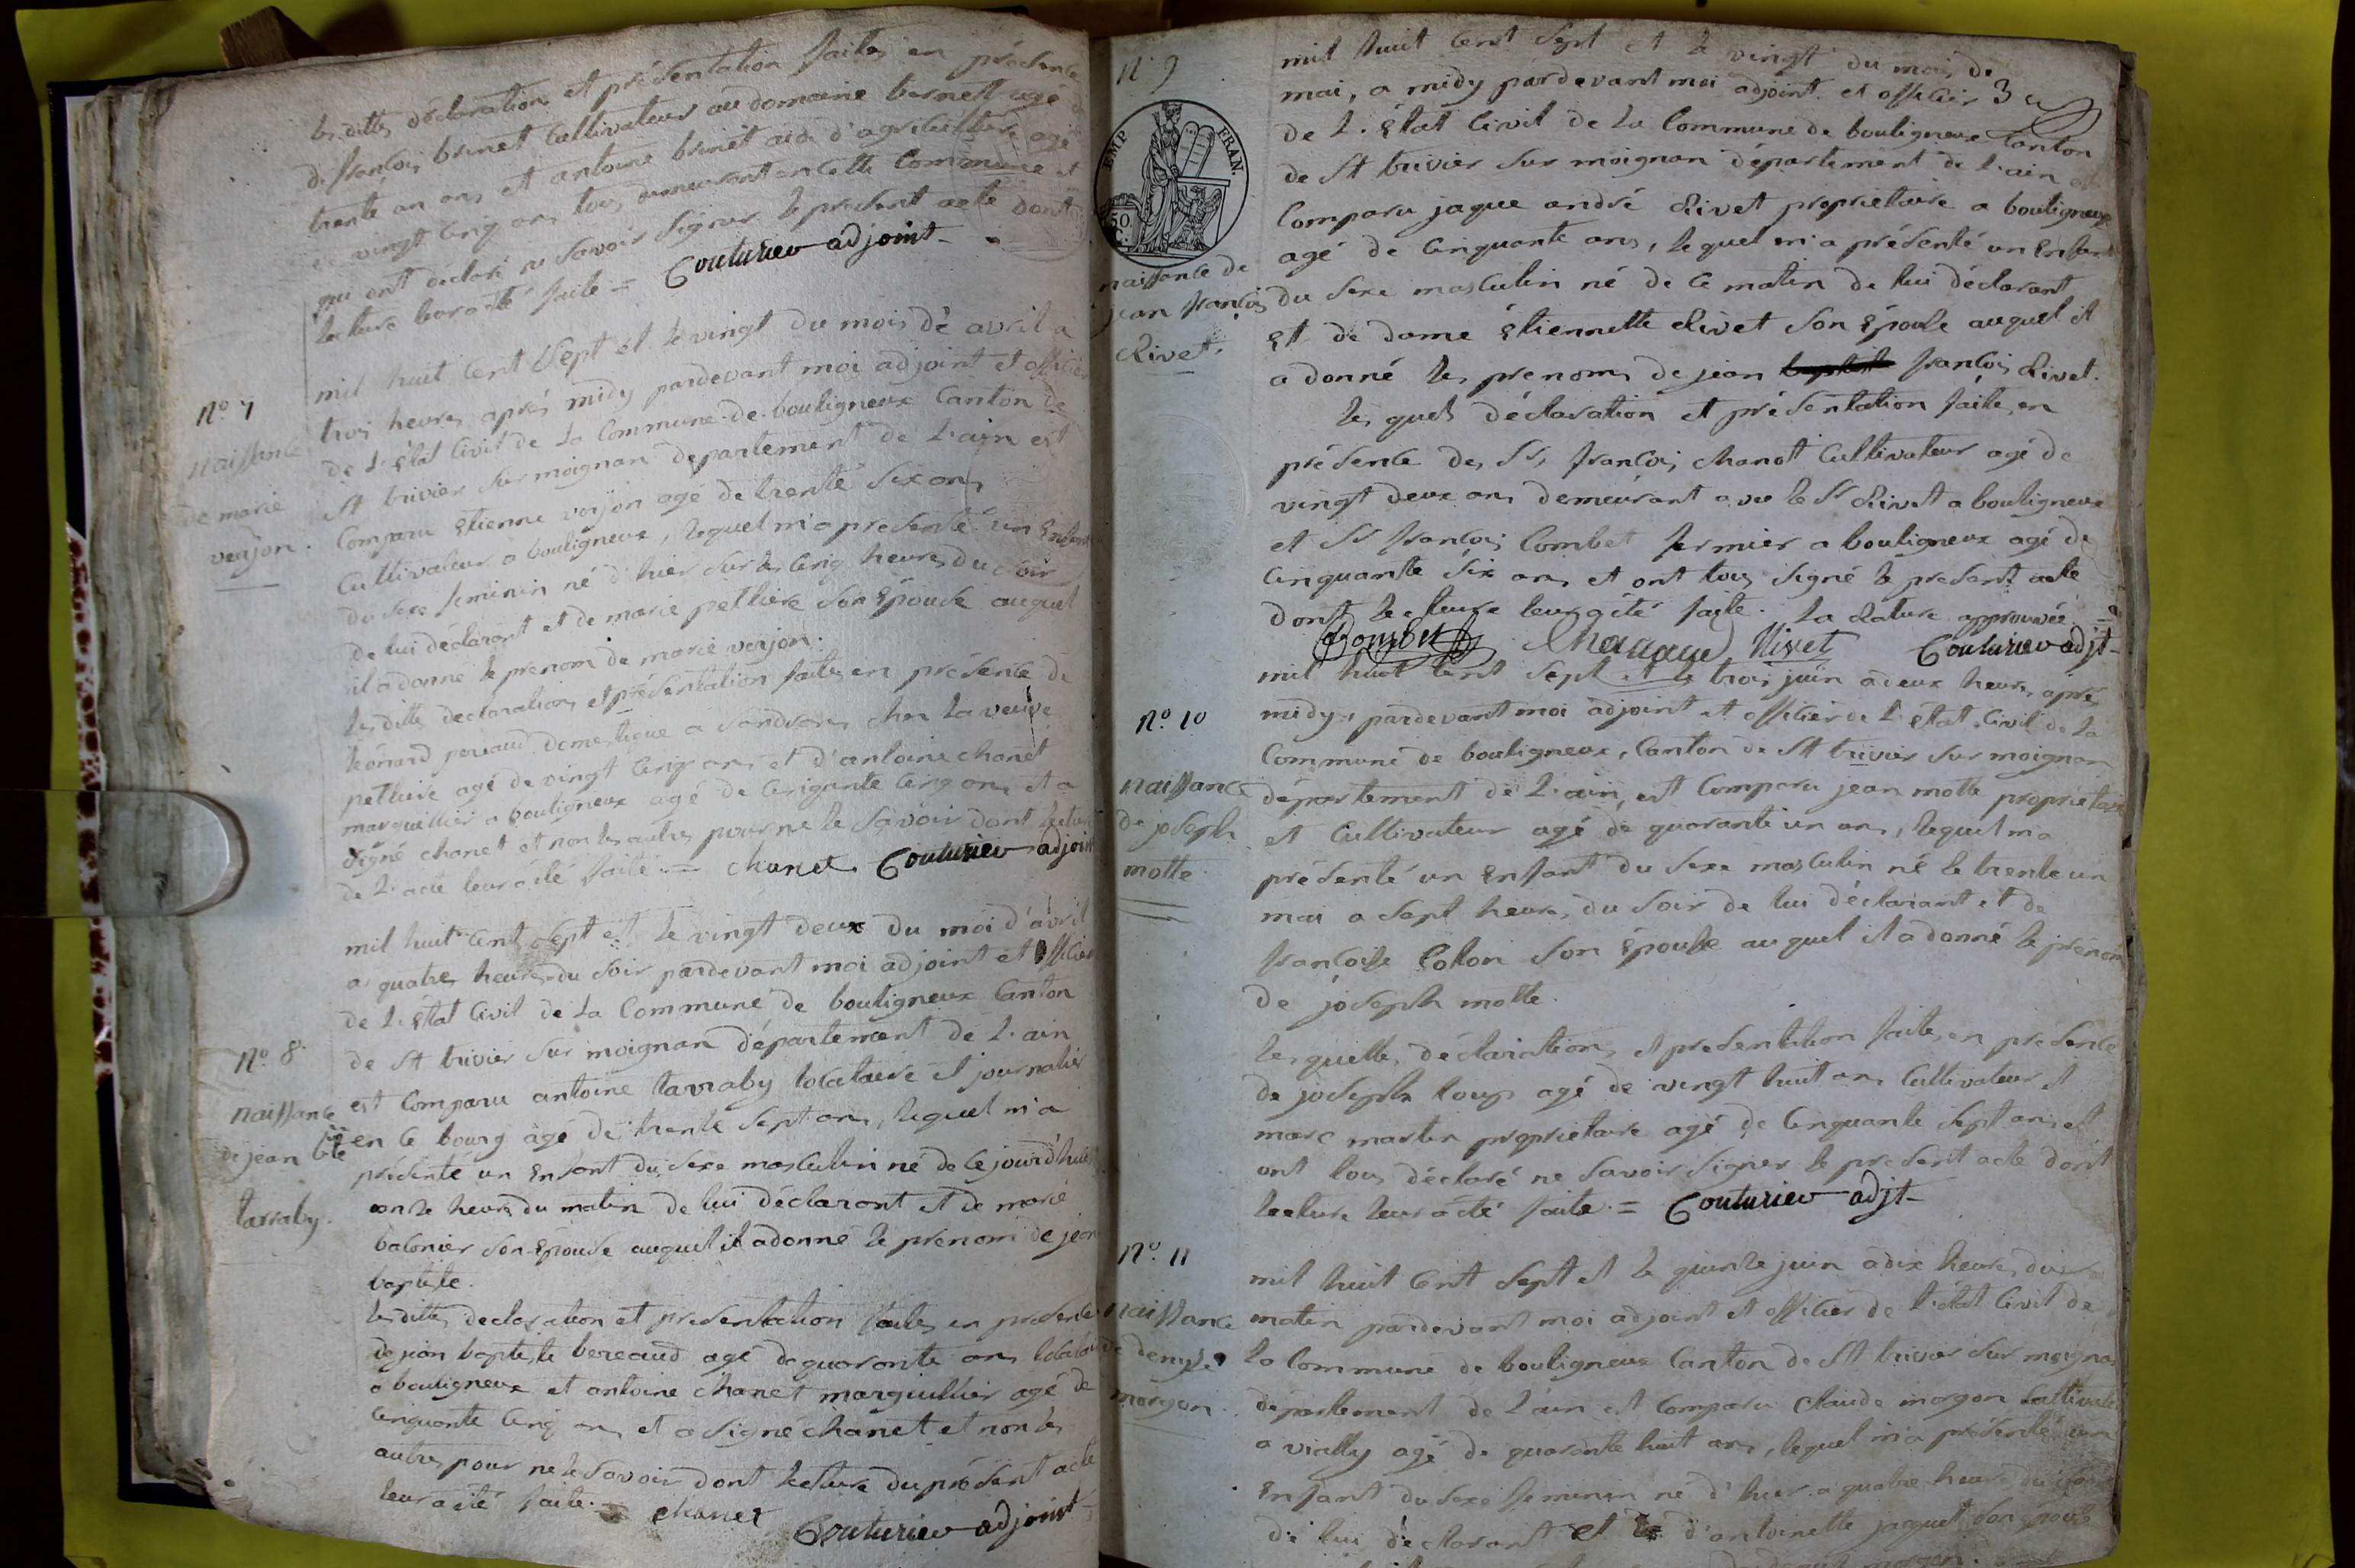 les dittes déclaration et présentation faites en présence
de françois brinet Cultivateur au domaine bernet agé de
trente un ans et antoine brinet aide d'agriculture agé
de vingt Cinq ans tous demeurant en Cette Commune et
qui ont declaré ne Savoir Signer le present acte dont
lecture leur a été faite = Couturier adjoint
N° 7
naissance
de marie
verjon.
mil huit Cent Sept et le vingt du mois de avril a
trois heures aprés midy pardevant moi adjoint et officier
de l'état Civil de la Commune de bouligneux Canton de
St trivier Sur moignan departement de l'ain est
Comparu Etienne verjon agé de trente Six ans
Cultivateur a bouligneux, lequel m'a presenté un Enfant
du Sexe feminin né d'hier Sur les Cinq heures du Soir
de lui déclarant et de marie pelliere Son Epouse auquel
il a donné le prenom de marie verjon.
les dittes declarations et présentation faites en présence de
leónard domestique a Sandrans chez la veuve
agé de vingt Cinq ans et d'antoine chanet
marguillier a bouligneux agé de Cinquante Cinq ans et a
Signé chanet et non les autres pour ne le Savoir dont lecture
de l'acte leur a été faite = chanet Couturier adjoint
N° 8
naissance
de jean bte
tarraby.
mil huit Cent Sept et le vingt deux du moi d'avril
a quatre heures du Soir pardevant moi adjoint et officier
de l'Etat Civil de la Commune de bouligneux Canton
de St trivier Sur moignan département de l'ain
est Comparu antoine tarraby locataire et journalier
en Ce bourg âgé de trente Sept ans, lequel m'a
présenté un Enfant du Sexe masculin né de Ce jourd'hui
onze heures du matin de lui déclarant et de marie
balonier Son Epouse auquel il a donné le prenom de jean
baptiste.
les dittes declaration et presentation faites en presence
de jean baptiste bereaud agé de quarante ans locataire
a bouligneux et antoine chanet marguillier agé de
Cinquante Cinq ans et a Signé chanet et non les
autres pour ne le Savoir dont lecture du présent acte
leur a été faite. = chanet Couturier adjoint
N° 9
EMP FRAN.
50
naissance de
jean françois
Rivet.
mil huit Cent Sept et le vingt du mois de
mai, a midy pardevant moi adjoint et officier 3
de l'Etat Civil de la Commune de bouligneux Canton
de St trivier Sur moignan département de l'ain est
Comparu jaque andré Rivet proprietaire a bouligneux
agé de Cinquante ans, lequel m'a présenté un Enfant
du Sexe masculin né de Ce matin de lui déclarant
Et de dame Etiennette Rivet Son Epouse auquel il
a donné les prenoms de jean françois Rivet.
les quels déclaration et présentation faite en
présence des Srs françois chanot Cultivateur agé de
vingt deux ans demeurant avec le Sr Rivet a bouligneux
et Sr françois Combet fermier a bouligneux agé de
Cinquante Six ans et ont tous Signé le present acte
dont lecture leur a été faite. la Rature approuvée =
Combet Rivet Couturier adjt
N° 10
naissance
de joseph
motte
mil huit Cent Sept et le trois juin a deux heures aprés
midy, pardevant moi adjoint et officier de l'Etat Civil de la
Commune de bouligneux, Canton de St trivier Sur moignan
département de l'ain, est Comparu jean motte proprietaire
et Cultivateur agé de quarante un ans, lequel m'a
présenté un Enfant du Sexe masculin né le trente un
mai a Sept heures du Soir de lui déclarant et de
françoise Colon Son Epouse auquel il a donné le prénom
de joseph motte.
les quelles déclaration et presentation faite en présence
de joseph loup agé de vingt huit ans Cultivateur et
marc martin proprietaire agé de Cinquante Sept ans et
ont tous déclaré ne Savoir Signer le present acte dont
lecture leur a été faite. = Couturier adjt
N° 11
naissance
de denyse
morgon.
mil huit Cent Sept et le quinze juin a dix heures du
matin pardevant moi adjoint et officier de l'état Civil de
la Commune de bouligneux Canton de St trivier Sur moignan
département de l'ain est Comparu Claude morgon Cultivateur
a vially agé de quarante huit ans, lequel m'a présenté un
Enfant du Sexe feminin né d'hier a quatre heures du Soir
de lui déclarant et d'antoinette jaquet Son Epouse
morgon.